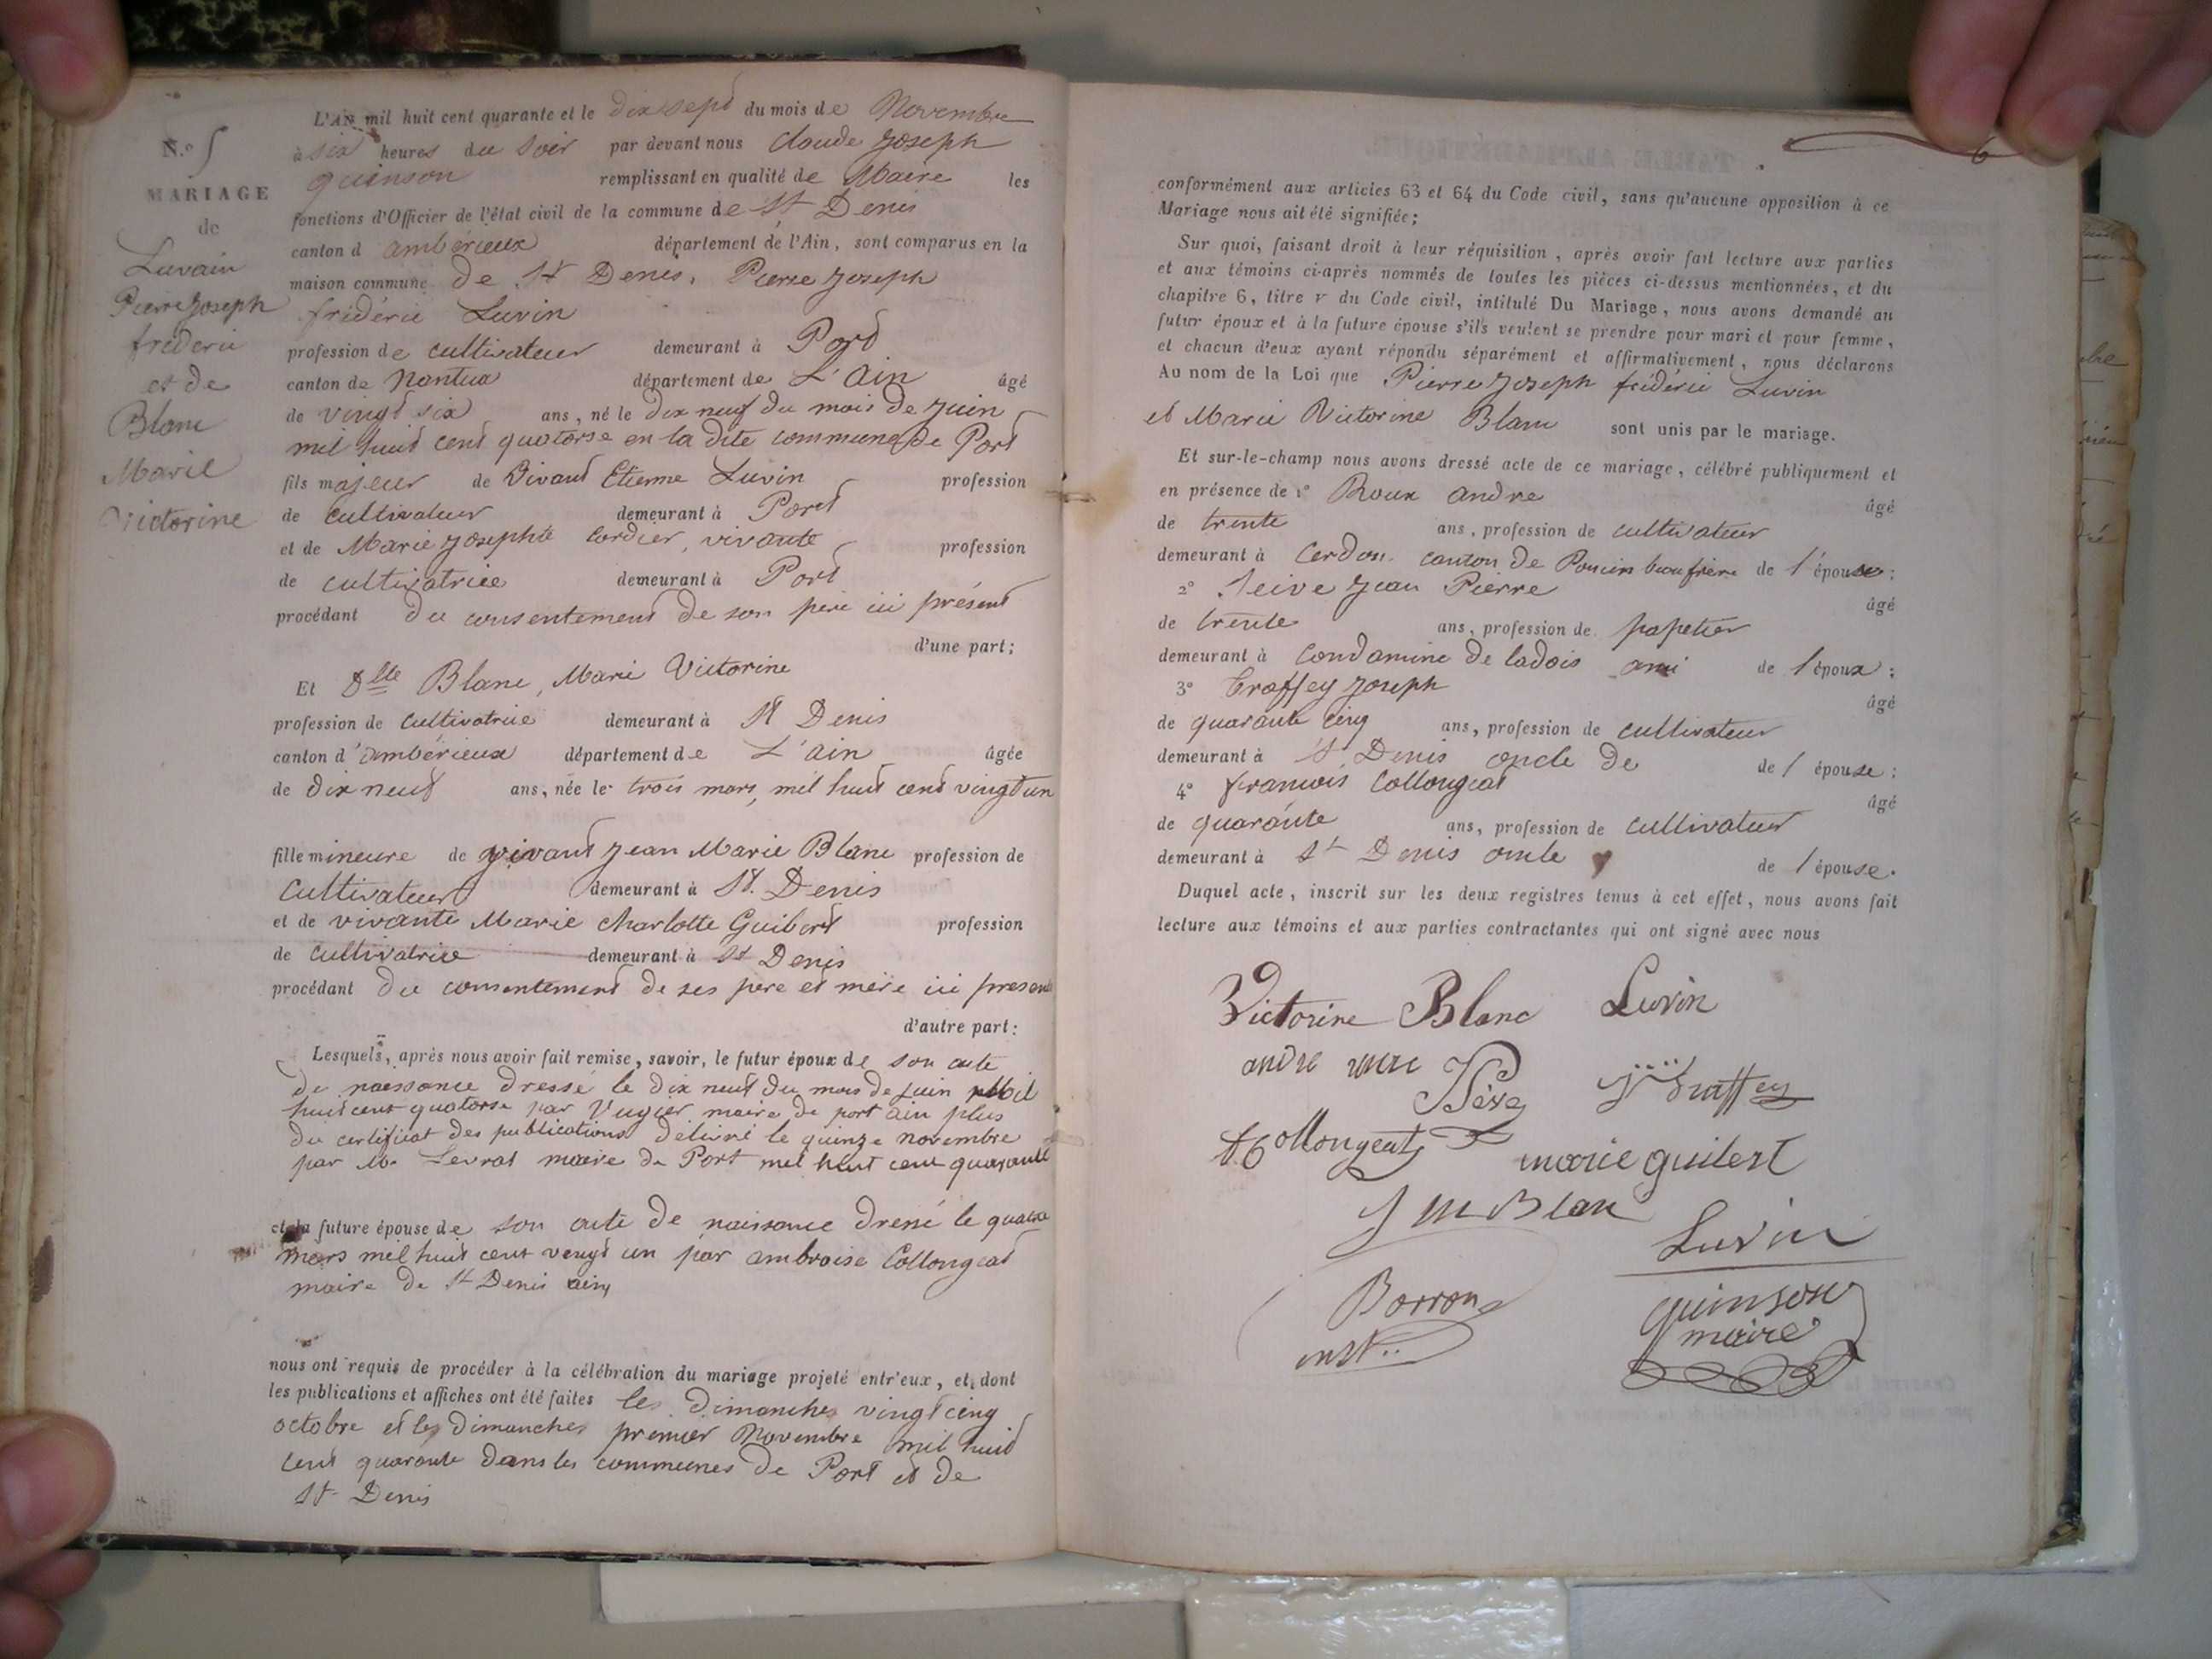 N.º 5
MARIAGE
de
Luvain
Pierre Joseph
frederic
et de
Blanc
Marie
Victorine
L'AN mil huit cent quarante et le dix sept du mois de Novembre
à six heures du Soir par devant nous Claude Joseph
quinson remplissant en qualité de Maire les
fonctions d'Officier de l'état civil de la commune de St Denis
canton d ambérieux département de l'Ain, sont comparus en la
maison commune de St Denis, Pierre Joseph
fréderic Luvin
profession de cultivateur demeurant à Port
canton de Nantua département de L'Ain âgé
de vingt six ans, né le dix neuf du mois de Juin
mil huit cent quatorse en la dite commune de Port
fils majeur de Vivant Etienne Luvin profession
de cultivateur demeurant à Port
et de Marie Josephte Cordier, vivante profession
de cultivatrice demeurant à Port
procédant du consentement de son père ici présent
d'une part;
Et Dlle Blanc, Marie Victorine
profession de cultivatrice demeurant à St Denis
canton d'ambérieux département de L'ain âgée
de dix neuf ans, née le trois mars, mil huit cent vingt un
fille mineure de vivant Jean Marie Blanc profession de
Cultivateur demeurant à St. Denis
et de vivante Marie Charlotte Guibert profession
de cultivatrice demeurant à St Denis
procédant du consentement de ses père et mère ici présent
d'autre part:
Lesquels, après nous avoir fait remise, savoir, le futur époux de son acte
de naissance dressé le dix neuf du mois de Juin mil
huit cent quatorse par Vugier maire de port ain plus
du certificat des publications délivré le quinze novembre
par Mr Levrat maire de Port mil huit cent quarante
et la future épouse de son acte de naissance dressé le quatre
mars mil huit cent vingt un par ambroise Collongeat
maire de St Denis ain
nous ont requis de procéder à la célébration du mariage projeté entr'eux, et dont
les publications et affiches ont été faites les Dimanches vingt cinq
octobre et les Dimanches premier Novembre mil huit
cent quarante dans les communes de Port et de
St Denis
6
conformément aux articles 63 et 64 du Code civil, sans qu'aucune opposition à ce
Mariage nous ait été signifiée;
Sur quoi, faisant droit à leur réquisition, après avoir fait lecture aux parties
et aux témoins ci-après nommés de toutes les pièces ci-dessus mentionnées, et du
chapitre 6, titre v du Code civil, intitulé Du Mariage, nous avons demandé au
futur époux et à la future épouse s'ils veulent se prendre pour mari et pour femme,
et chacun d'eux ayant répondu séparément et affirmativement, nous déclarons
Au nom de la Loi que Pierre Joseph fréderic Luvin
et Marie Victorine Blanc sont unis par le mariage.
Et sur-le-champ nous avons dressé acte de ce mariage, célébré publiquement et
en présence de 1º Roux andre âgé
de trente ans, profession de cultivateur
demeurant à Cerdon canton de Poncin beaufrère de l'épouse;
2º Seive Jean Pierre âgé
de trente ans, profession de papetier
demeurant à Condamine de ladois ami de l époux;
3º Traffey Joseph âgé
de quarante cinq ans, profession de cultivateur
demeurant à St Denis oncle de de l épouse;
4º françois Collongeat âgé
de quarante ans, profession de cultivateur
demeurant à St Denis oncle de l épouse.
Duquel acte, inscrit sur les deux registres tenus à cet effet, nous avons fait
lecture aux témoins et aux parties contractantes qui ont signé avec nous
Victorine Blanc Luvin
andre roux Sève J Traffey
f Collongeat marie guibert
J M Blanc Luvin
Borron
inst..
quinson
maire